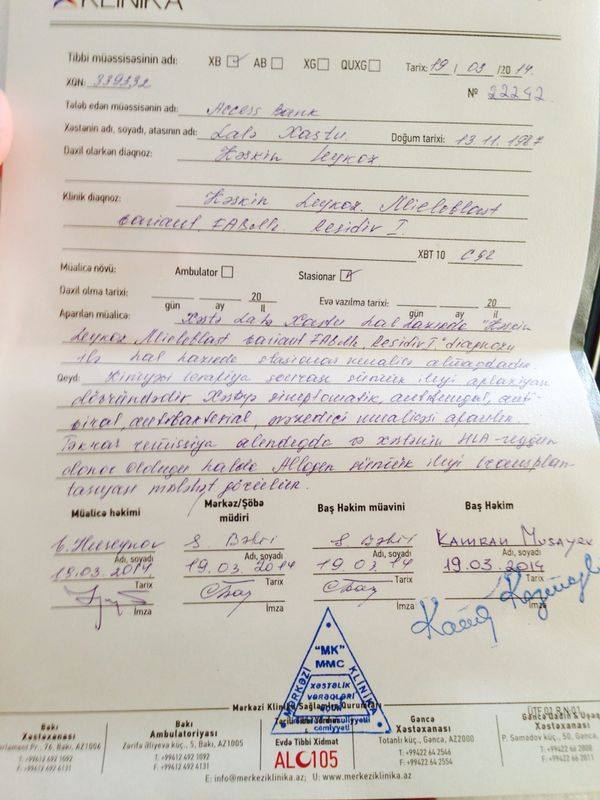 KLİNİKA
Tibbi müəssisəsinin adı: XB AB XG QUXG Tarix: 19 / 03 /20 14.
XQN: 339332
№ 22242
Tələb edən müəssisənin adı: Access Bank
Xəstənin adı, soyadı, atasının adı: Lalə Xastu Doğum tarixi: 13.11.1987
Daxil olarkən diaqnoz: Kəskin Leykoz
Klinik diaqnoz: Kəskin Leykoz. Mieloblast
variant. Residiv I.
XBT 10 C92
Müalicə növü: Ambulator Stasionar
Daxil olma tarixi: 20 Evə yazılma tarixi: 20
gün ay il gün ay il
Aparılan müalicə: Xəstə Lalə Xastu hal hazırda "Kəskin
Leykoz Mieloblast variant Residiv I" diaqnozu
ilə hal hazırda stasionar müalicə almaqdadır.
Qeyd: Kimyəvi terapiya sonrası sümük iliyi aplaziyası
dövründədir. Xəstəyə simptomatik, antifunqal, anti-
viral, antibakterial, əvəzedici müalicəsi aparılır.
Təkrar remissiya alındıqda və xəstənin HLA-uyğun
donor olduğu halda Allogen sümük iliyi transplan-
tasiyası məsləhət görülür.
Müalicə həkimi Mərkəz/Şöbə müdiri Baş Həkim müavini Baş Həkim
Huseynov S Bəhri S Bəhri Kamran Musayev
Adı, soyadı Adı, soyadı Adı, soyadı Adı, soyadı
19.03.2014 19.03.2014 19.03.14 19.03.2014
Tarix Tarix Tarix Tarix
İmza İmza İmza İmza
"MK"
MMC
MƏRKƏZİ KLİNİKA
XƏSTƏLİK
VƏRƏQLƏRİ
ÜÇÜN
Mərkəzi Klinika Sağlamlıq Qurumları
ÜTF.01.R.N:01
Bakı
Xəstəxanası
Parlament Pr., 76, Bakı, AZ1006
T: +99412 492 1092
F: +99412 492 6131
Bakı
Ambulatoriyası
Zərifə Əliyeva küç., 5, Bakı, AZ1005
T: +99412 492 1092
F: +99412 492 6131
Evdə Tibbi Xidmət
AL 105
Gəncə
Xəstəxanası
Totanlı küç., Gəncə, AZ2000
T: +99422 64 2546
F: +99422 64 2554
Gəncə Qadın & Uşaq
Xəstəxanası
P. Səmədov küç., 50, Gəncə,
E: info@merkeziklinika.az; U: www.merkeziklinika.az